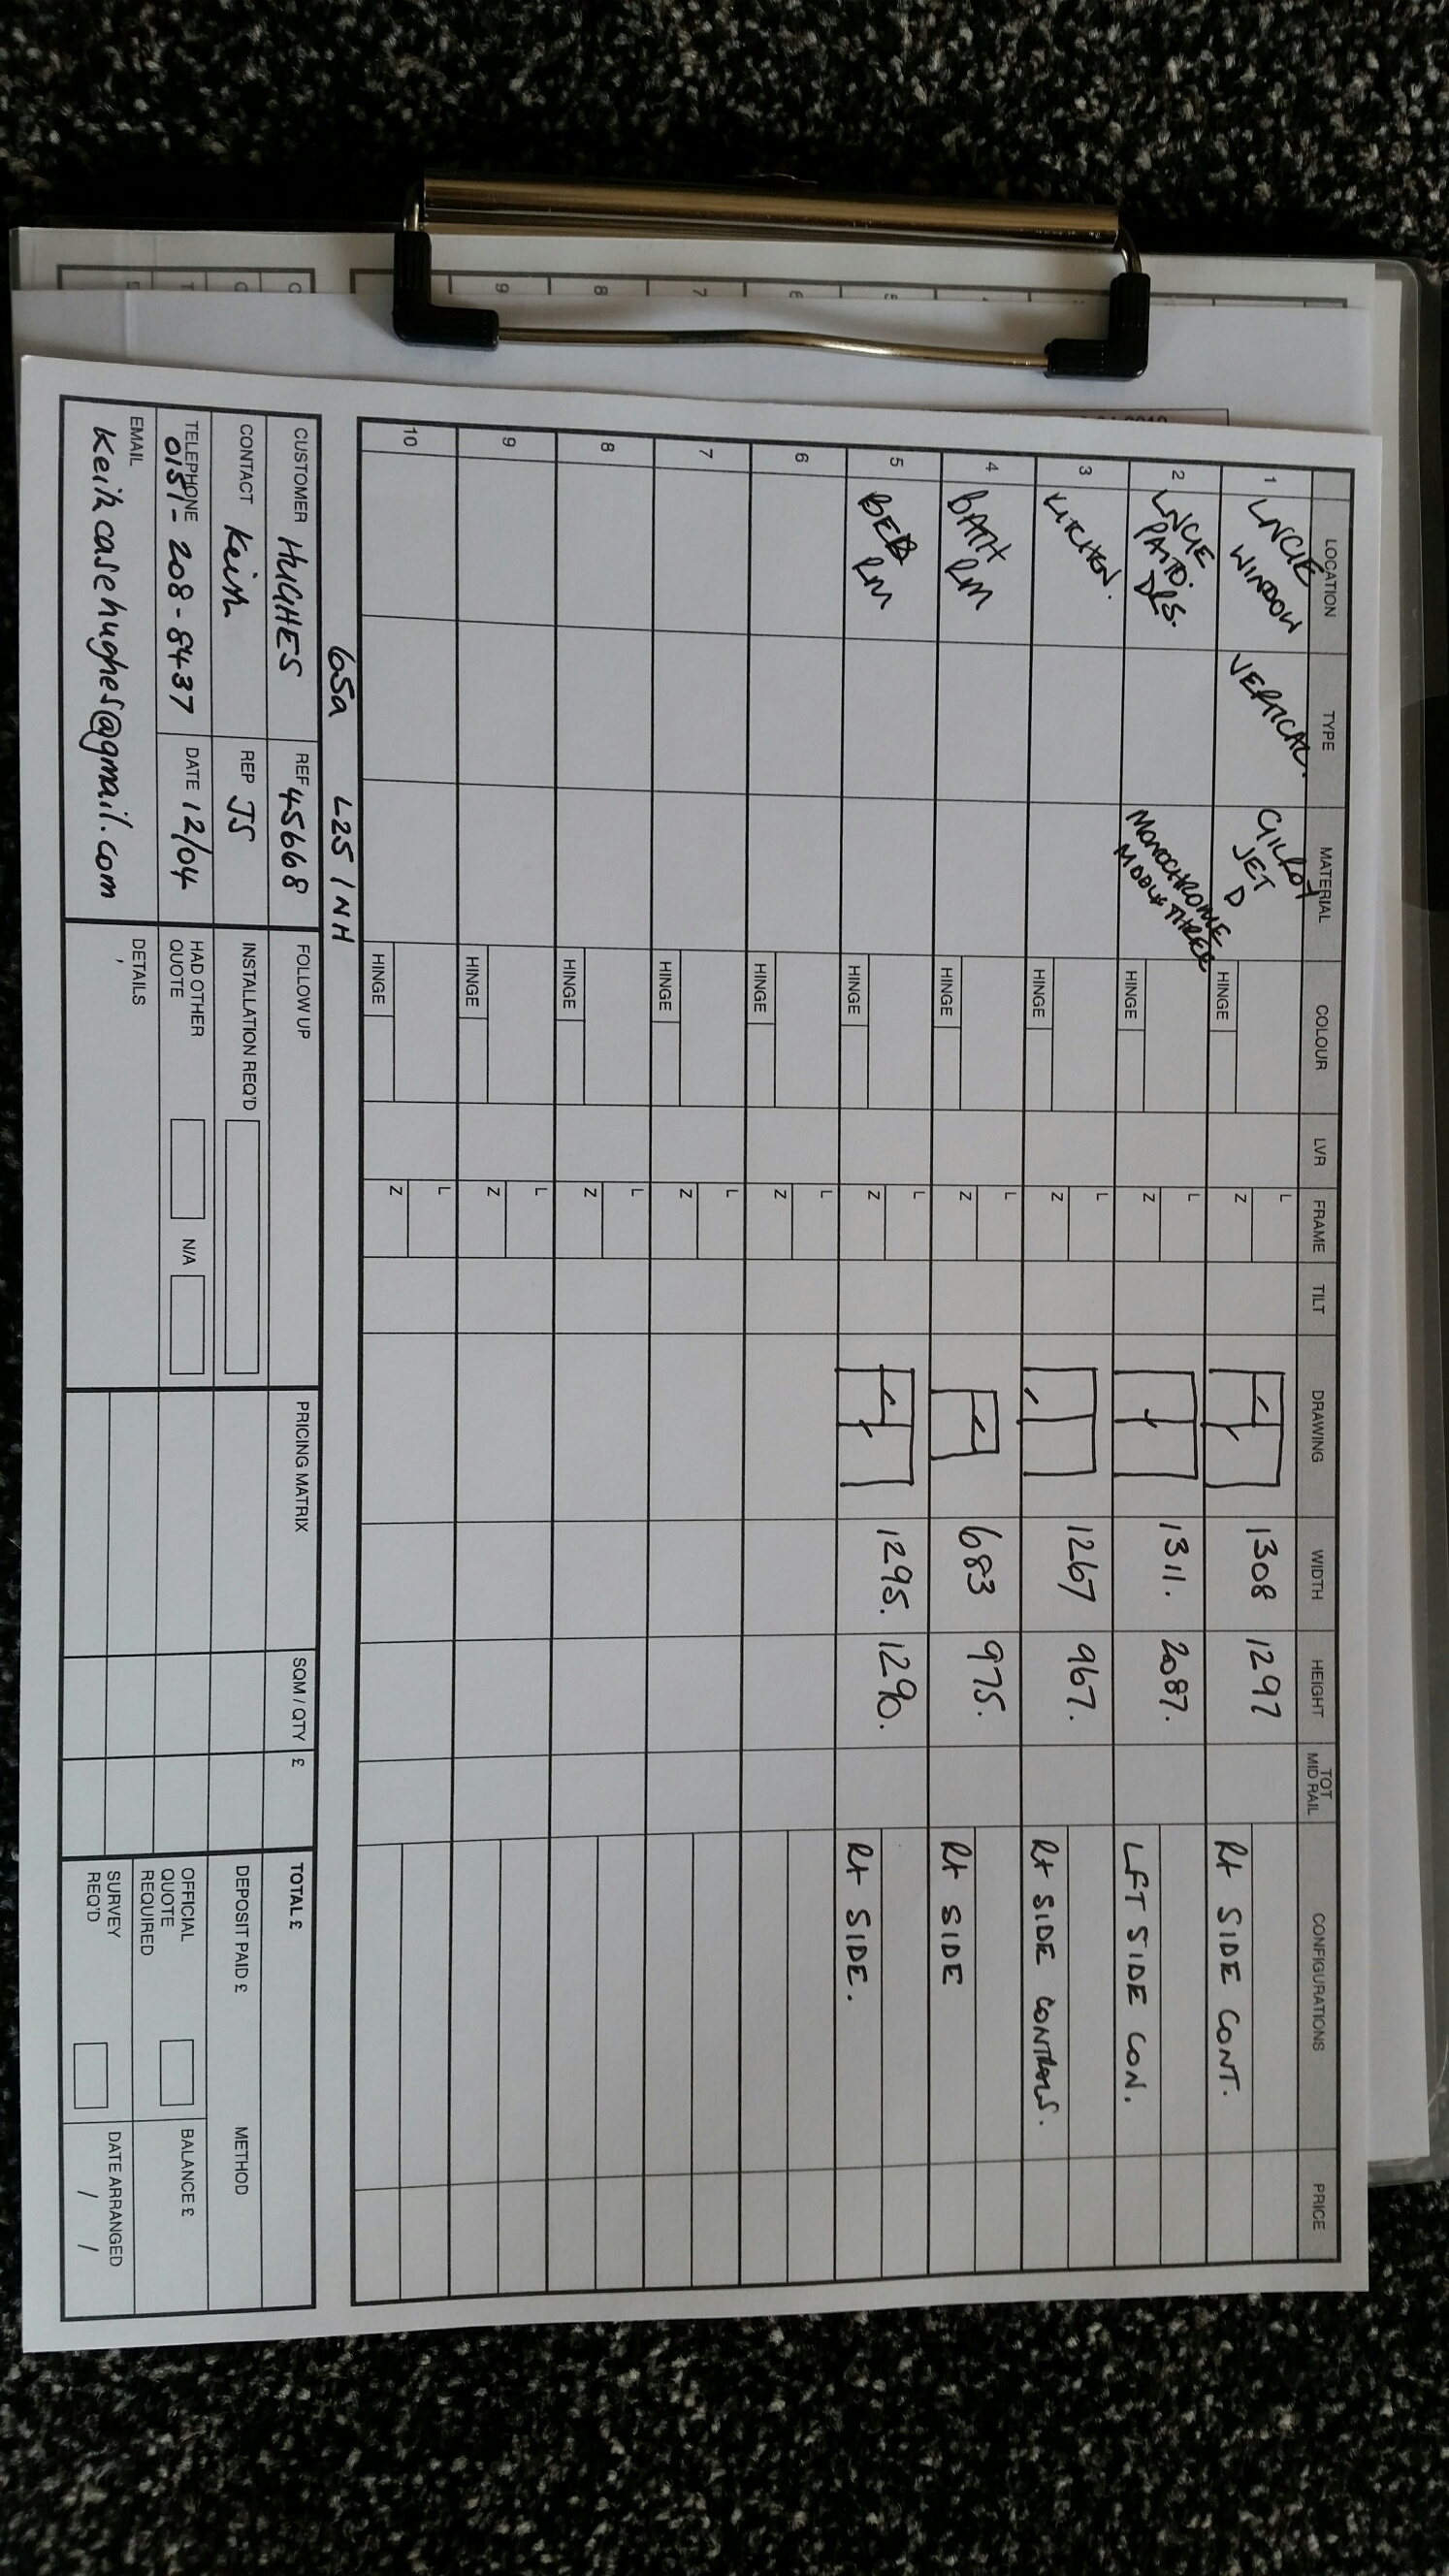 LOCATION TYPE MATERIAL COLOUR LVR FRAME TILT DRAWING WIDTH HEIGHT TOT MID RAIL CONFIGURATIONS PRICE
1 LNGE WINDOW VERTICAL. JET D HINGE L Z 1308 1297 Rt SIDE CONT.
2 LNGE PATIO. DRS. MONOCHROME THREE HINGE L Z 1311. 2087. LFT SIDE CON.
3 KITCHEN. HINGE L Z 1267 967. Rt SIDE CONTROLS.
4 BATH RM HINGE L Z 683 975. Rt SIDE
5 BED RM HINGE L Z 1295. 1290. Rt SIDE.
6 HINGE L Z
7 HINGE L Z
8 HINGE L Z
9 HINGE L Z
10 HINGE L Z
65a L25 1NH
CUSTOMER HUGHES REF 45668 FOLLOW UP PRICING MATRIX SQM / QTY £ TOTAL £
CONTACT Keith REP JS INSTALLATION REQ'D DEPOSIT PAID £ METHOD
TELEPHONE 0151-208-8437 DATE 12/04 HAD OTHER QUOTE N/A OFFICIAL QUOTE REQUIRED BALANCE £
EMAIL Keithcasehughes@gmail.com DETAILS SURVEY REQ'D DATE ARRANGED / /